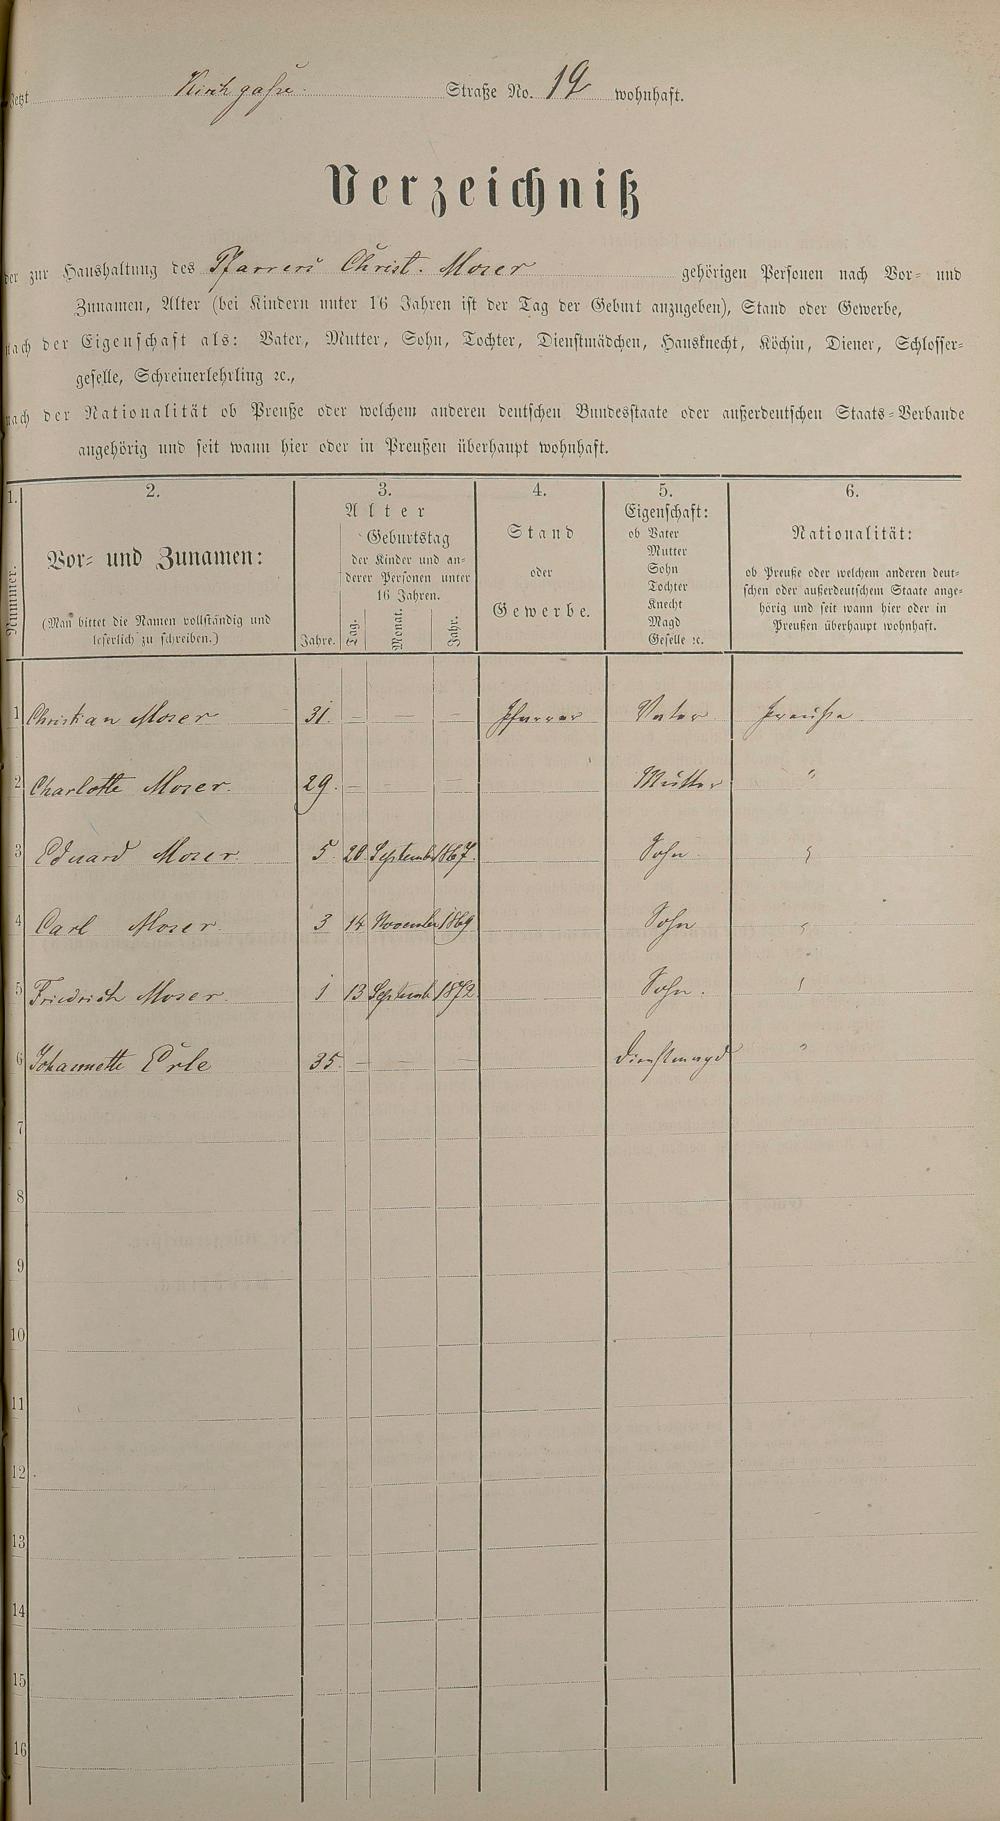 Jetzt Kirchgasse Straße No. 19 wohnhaft.
Verzeichniß
der zur Haushaltung des Pfarrers Christ. Moser gehörigen Personen nach Vor- und
Zunamen, Alter (bei Kindern unter 16 Jahren ist der Tag der Geburt anzugeben), Stand oder Gewerbe,
nach der Eigenschaft als: Vater, Mutter, Sohn, Tochter, Dienstmädchen, Hausknecht, Köchin, Diener, Schlosser-
geselle, Schreinerlehrling ꝛc.,
nach der Nationalität ob Preuße oder welchem anderen deutschen Bundesstaate oder außerdeutschen Staats-Verbande
angehörig und seit wann hier oder in Preußen überhaupt wohnhaft.
1. 2. 3. 4. 5. 6.
Nummer.
Vor- und Zunamen:
(Man bittet die Namen vollständig und
leserlich zu schreiben.)
Alter
Jahre.
Geburtstag
der Kinder und an-
derer Personen unter
16 Jahren.
Tag. Monat. Jahr.
Stand
oder
Gewerbe.
Eigenschaft:
ob Vater
Mutter
Sohn
Tochter
Knecht
Magd
Geselle ꝛc.
Nationalität:
ob Preuße oder welchem anderen deut-
schen oder außerdeutschem Staate ange-
hörig und seit wann hier oder in
Preußen überhaupt wohnhaft.
1 Christian Moser 31. — — — Pfarrer Vater Preuße
2 Charlotte Moser. 29. — — — Mutter "
3 Eduard Moser 5 20 September 1867. Sohn "
4 Carl Moser 3 14 November 1869 Sohn "
5 Friedrich Moser. 1 13 Septemb 1872. Sohn. "
6 Johannette Erle 35. — — — Dienstmagd "
7
8
9
10
11
12
13
14
15
16